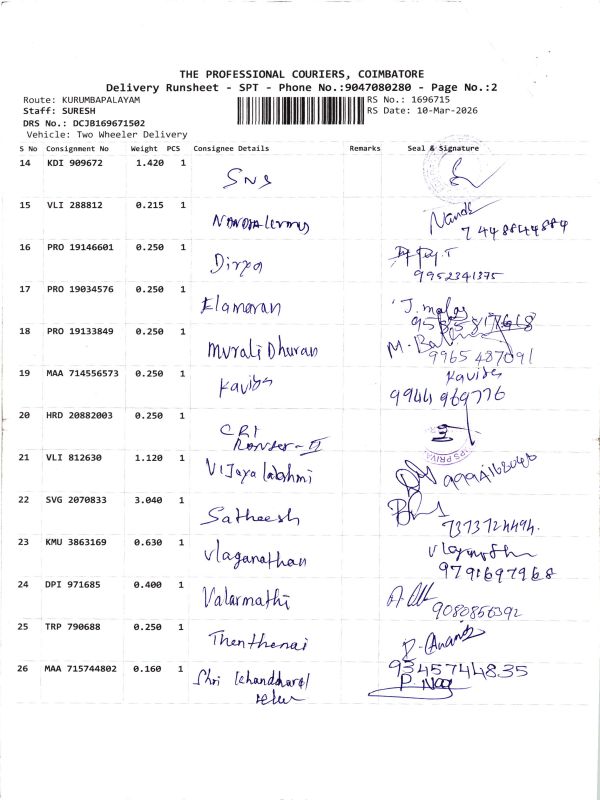 THE PROFESSIONAL COURIERS, COIMBATORE
Delivery Runsheet - SPT - Phone No.:9047080280 - Page No.:2
Route: KURUMBAPALAYAM
Staff: SURESH
DRS No.: DCJB169671502
Vehicle: Two Wheeler Delivery
RS No.: 1696715
RS Date: 10-Mar-2026
S No Consignment No Weight PCS Consignee Details Remarks Seal & Signature
14 KDI 909672 1.420 1
SNS
15 VLI 288812 0.215 1
Nands
7448844884
16 PRO 19146601 0.250 1
Divya
9952341375
17 PRO 19034576 0.250 1
Elamaran
18 PRO 19133849 0.250 1
Murali Dhuran
9965487091
19 MAA 714556573 0.250 1
Kavids Kavids
9944969776
20 HRD 20882003 0.250 1
CRI
21 VLI 812630 1.120 1
Vijaya lakshmi
22 SVG 2070833 3.040 1
Satheesh
7373724494.
23 KMU 3863169 0.630 1
Vlaganathan
9791697968
24 DPI 971685 0.400 1
Valarmathi
9080856392
25 TRP 790688 0.250 1
Thenthenai
9345744835
26 MAA 715744802 0.160 1
Shri